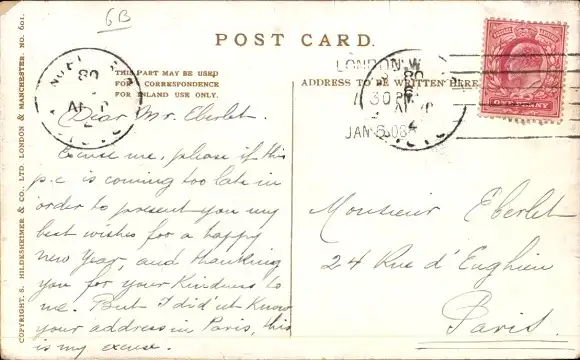 6B
POST CARD.
THIS PART MAY BE USED
FOR CORRESPONDENCE
FOR INLAND USE ONLY.
LONDON.W
ADDRESS TO BE WRITTEN HERE
30 P
JAN 5 08
ONE PENNY
COPYRIGHT. S. HILDESHEIMER & CO., LTD LONDON & MANCHESTER. NO. 601.
Dear Mr. Eberlet.
Excuse me, please if this
p.c is coming too late in
order to present you my
best wishes for a happy
new Year, and thanking
you for your Kindness to
me. But I did'nt Know
your address in Paris, this
is my excuse.
Monsieur Eberlet
24 Rue d'Enghien
Paris.